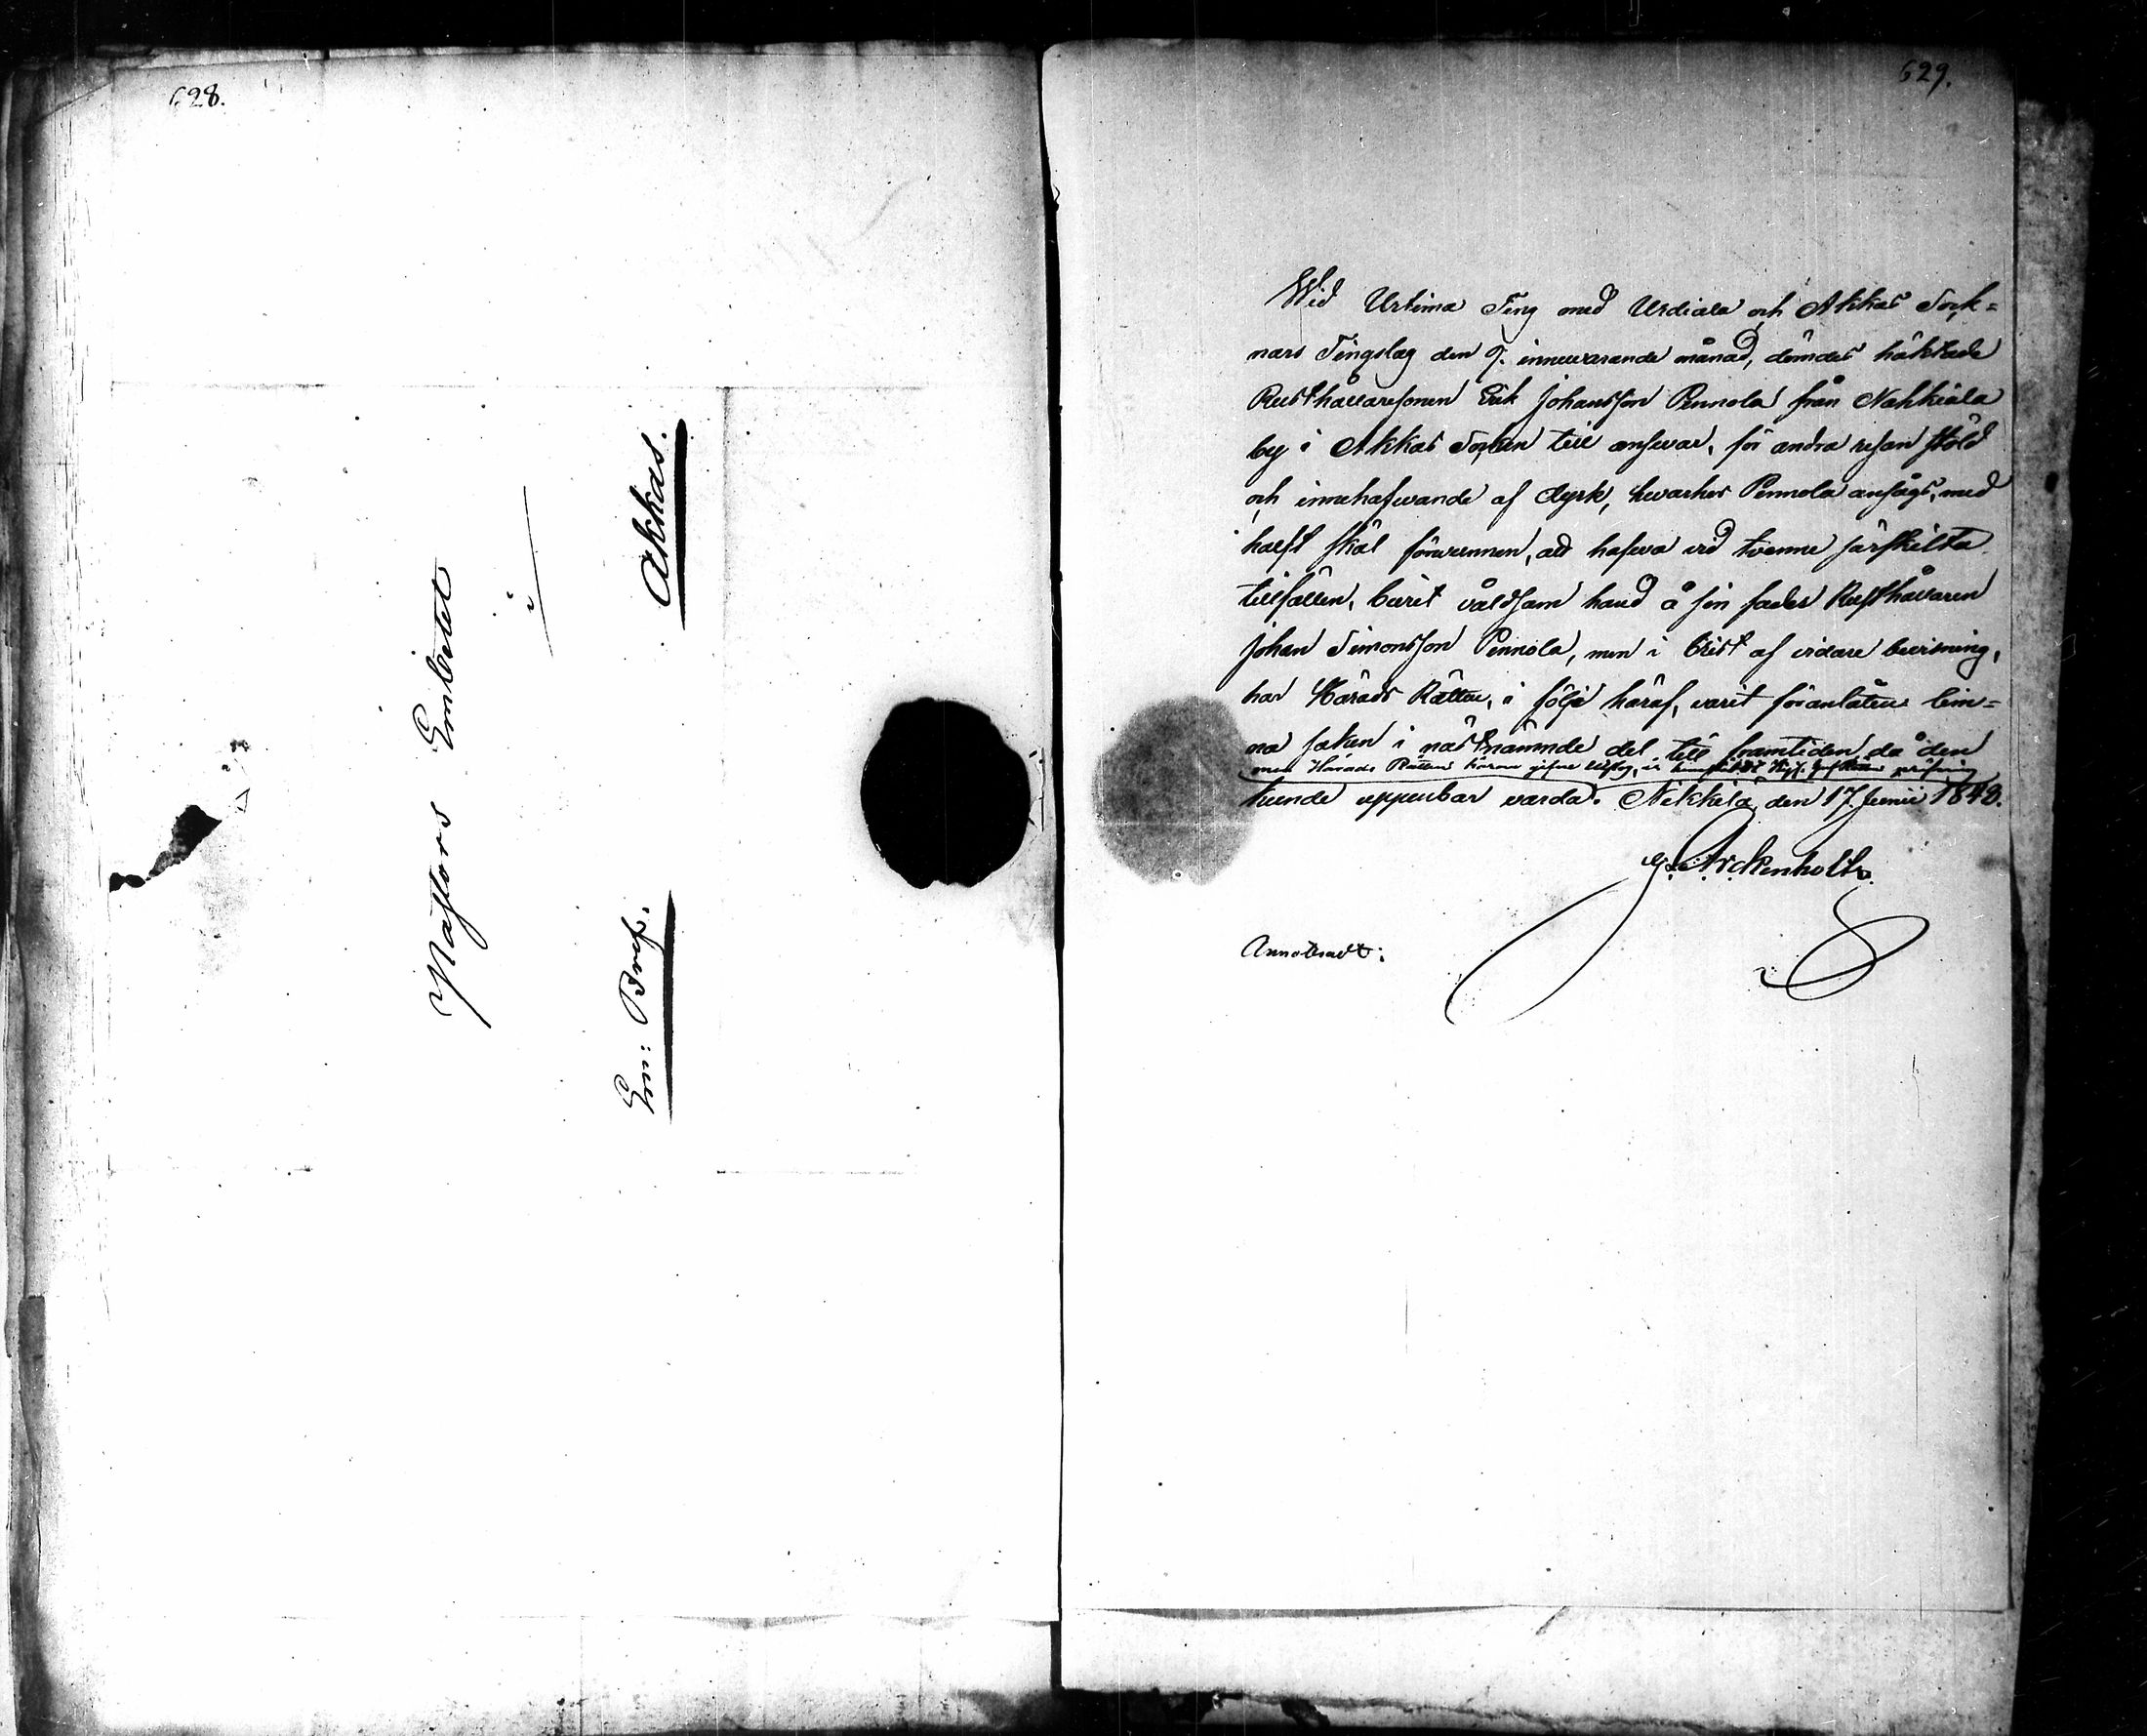 628.
Pastors Embetet
i
Akkas.
Em: Bref.
629.
Wid Urtima Ting med Urdiala och Akkas Sock=
nars Tingslag den 9. innewarande månad, dömdes häktade
Rusthållaresonen Erik Johansson Pennola från Nahkiala
by i Akkas Socken till answar, för andra resan stöld
och innehafwande af dyrk, hwarhos Pennola ansågs, med
halft skäl förwunnen, att hafwa vid tvenne särskilta
tillfällen, burit våldsam hand å sin fader Rusthållaren
Johan Simonsson Pennola, men i brist af vidare bevisning,
har Härads Rätten, i följe häraf, varit föranlåten lem=
na saken i näst nämnde del till framtiden då den
men Härads Rättens härom gifne utslag, är Kejs. Hof Rättens pröfning
kunde uppenbar varda. Nikkilä den 17. Junii 1848.
G. Arckenholtz.
Annoteradt: